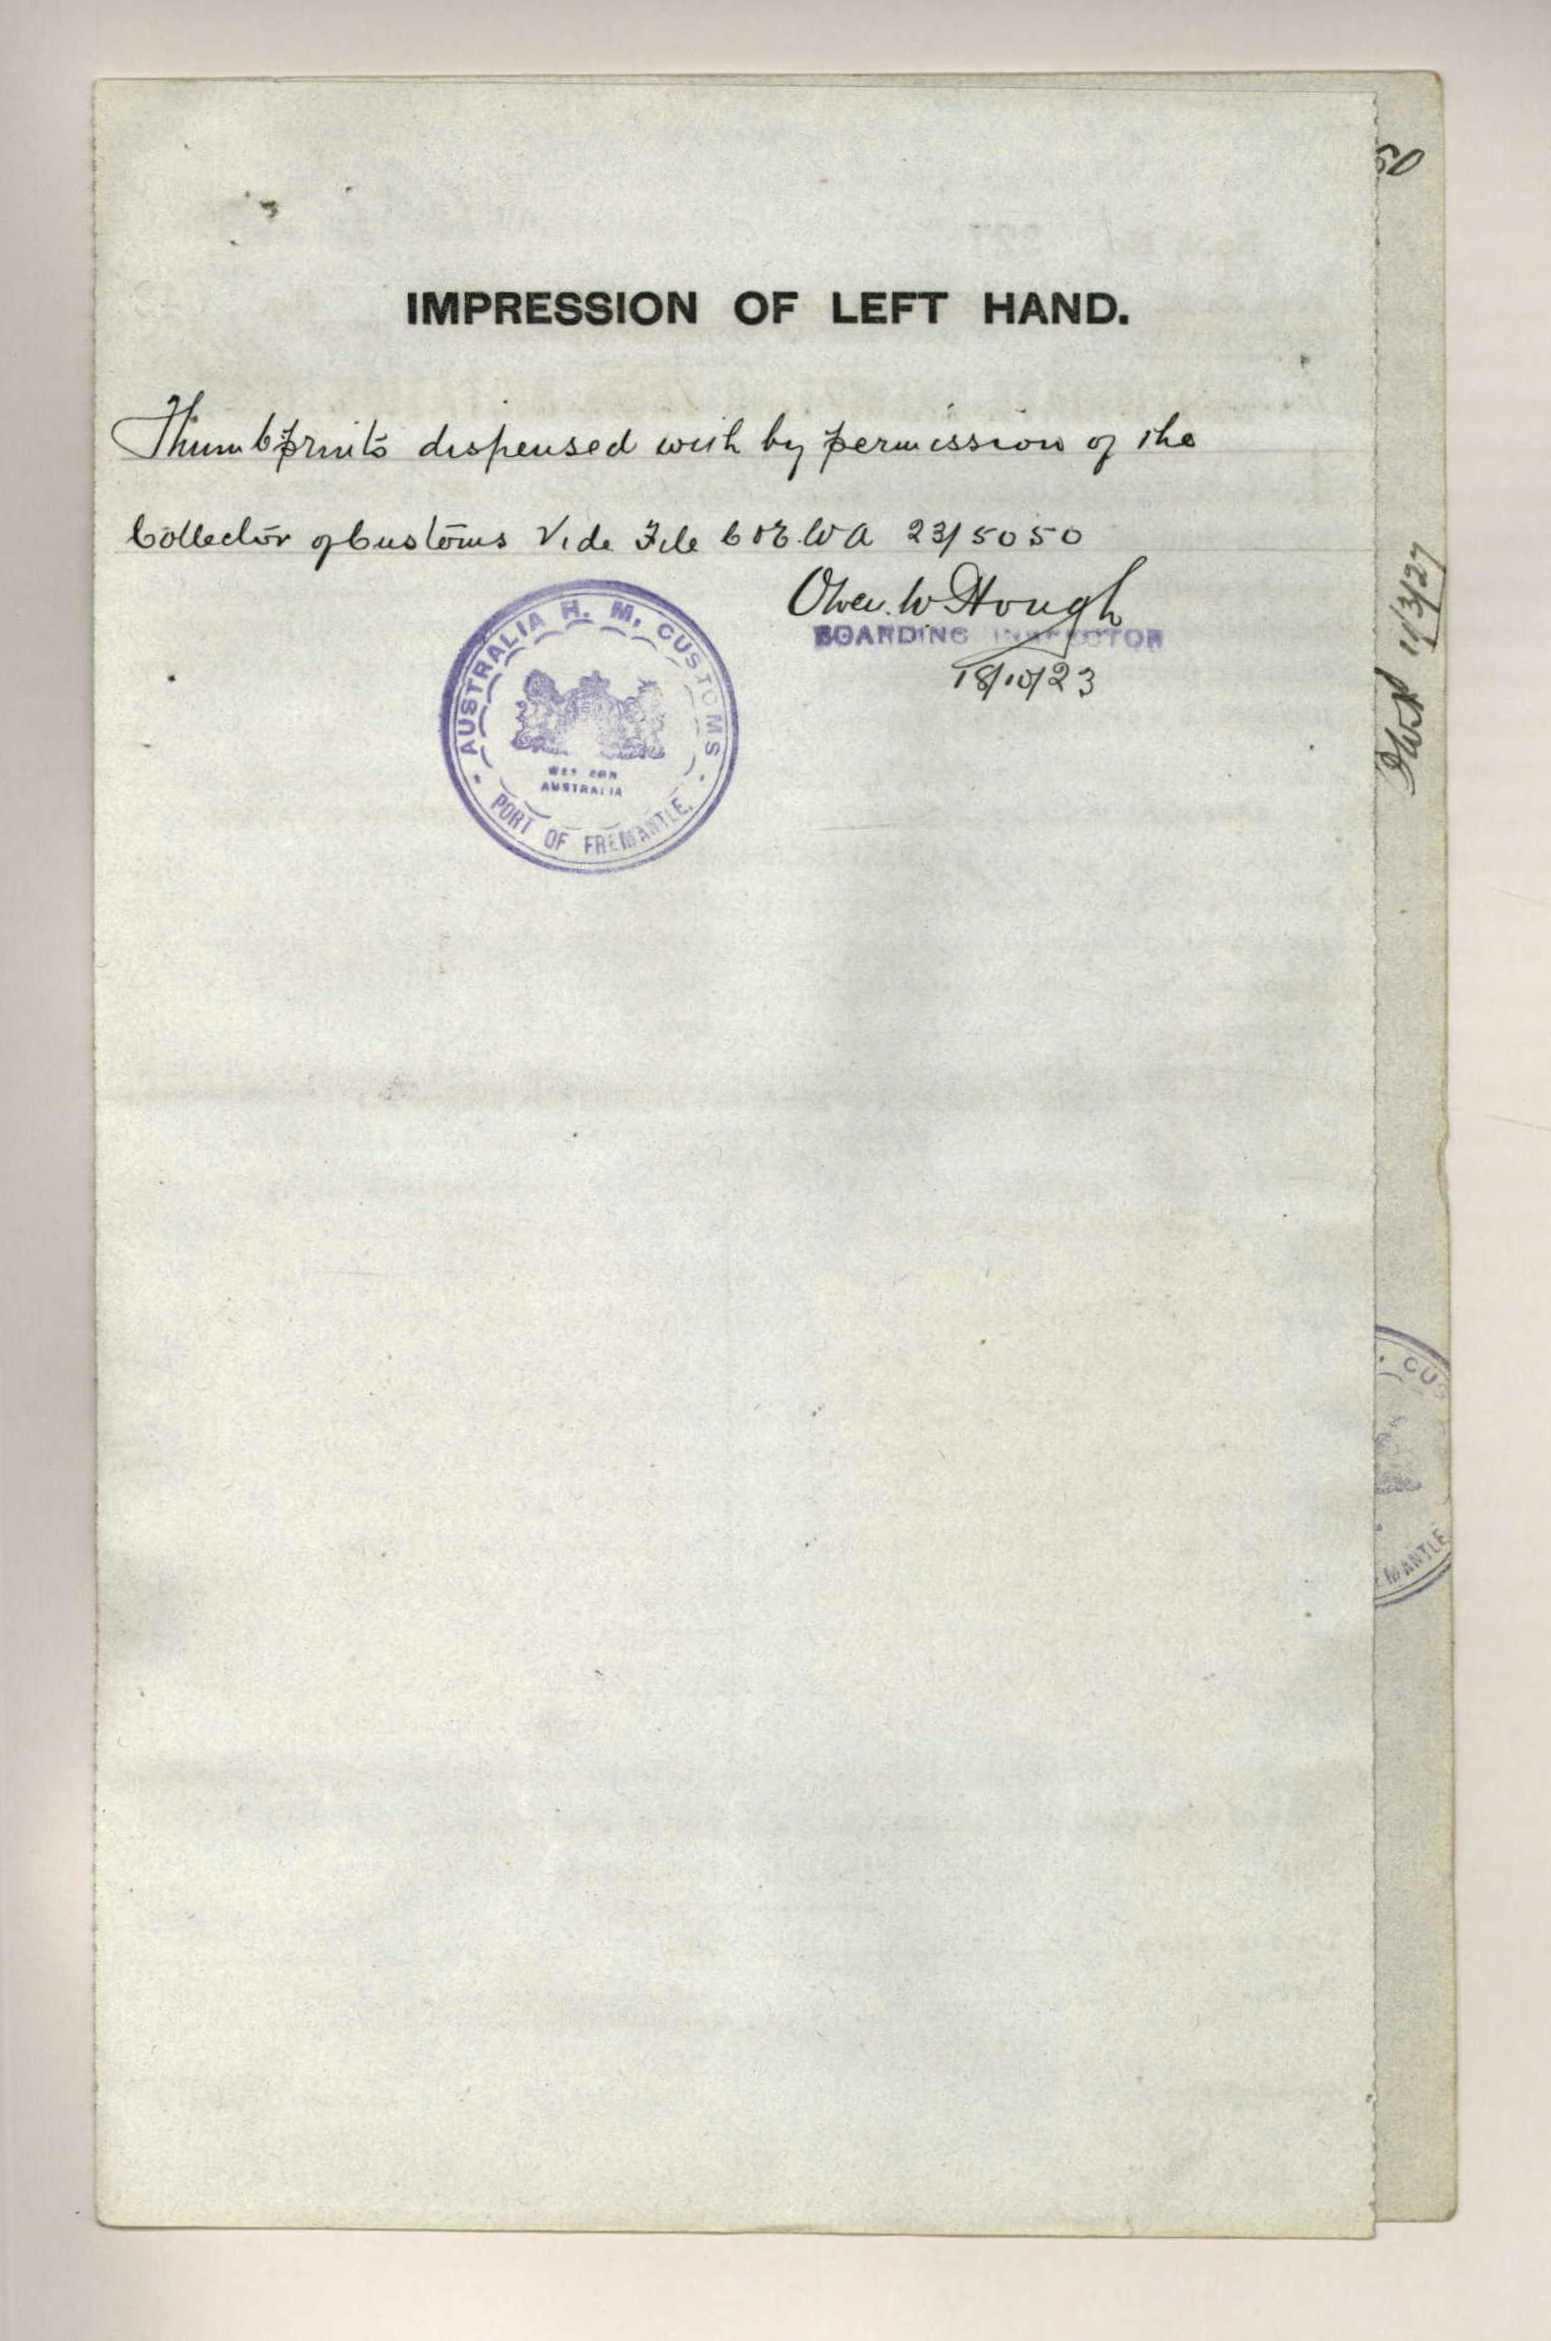 50
IMPRESSION OF LEFT HAND.
Thumbprints dispensed with by permission of the
Collector of Customs Vide File C & E. WA 23/5050
W Hough
BOARDING INSPECTOR
18/10/23
AUSTRALIA H. M. CUSTOMS
WESTERN
AUSTRALIA
PORT OF FREMANTLE.
11/3/27
CUS
EMANTLE